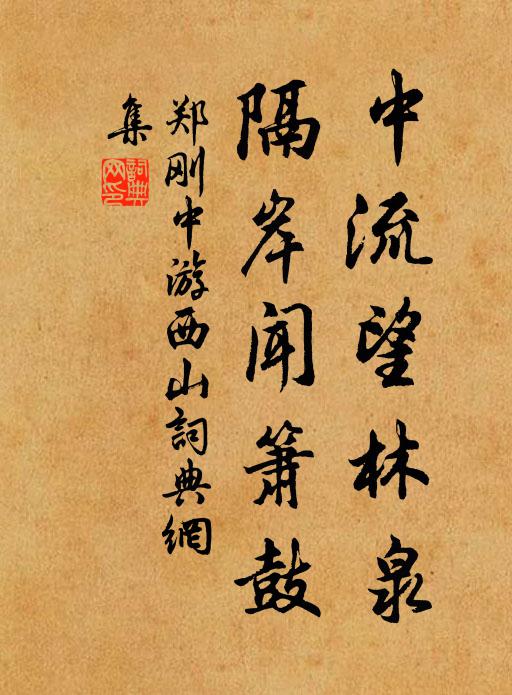 中流望林泉
隔岸闻箫鼓
郑刚中游西山詞典網
集
詞典
网印